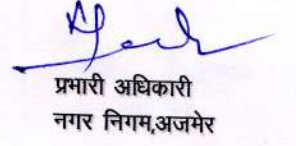 प्रभारी अधिकारी
नगर निगम,अजमेर